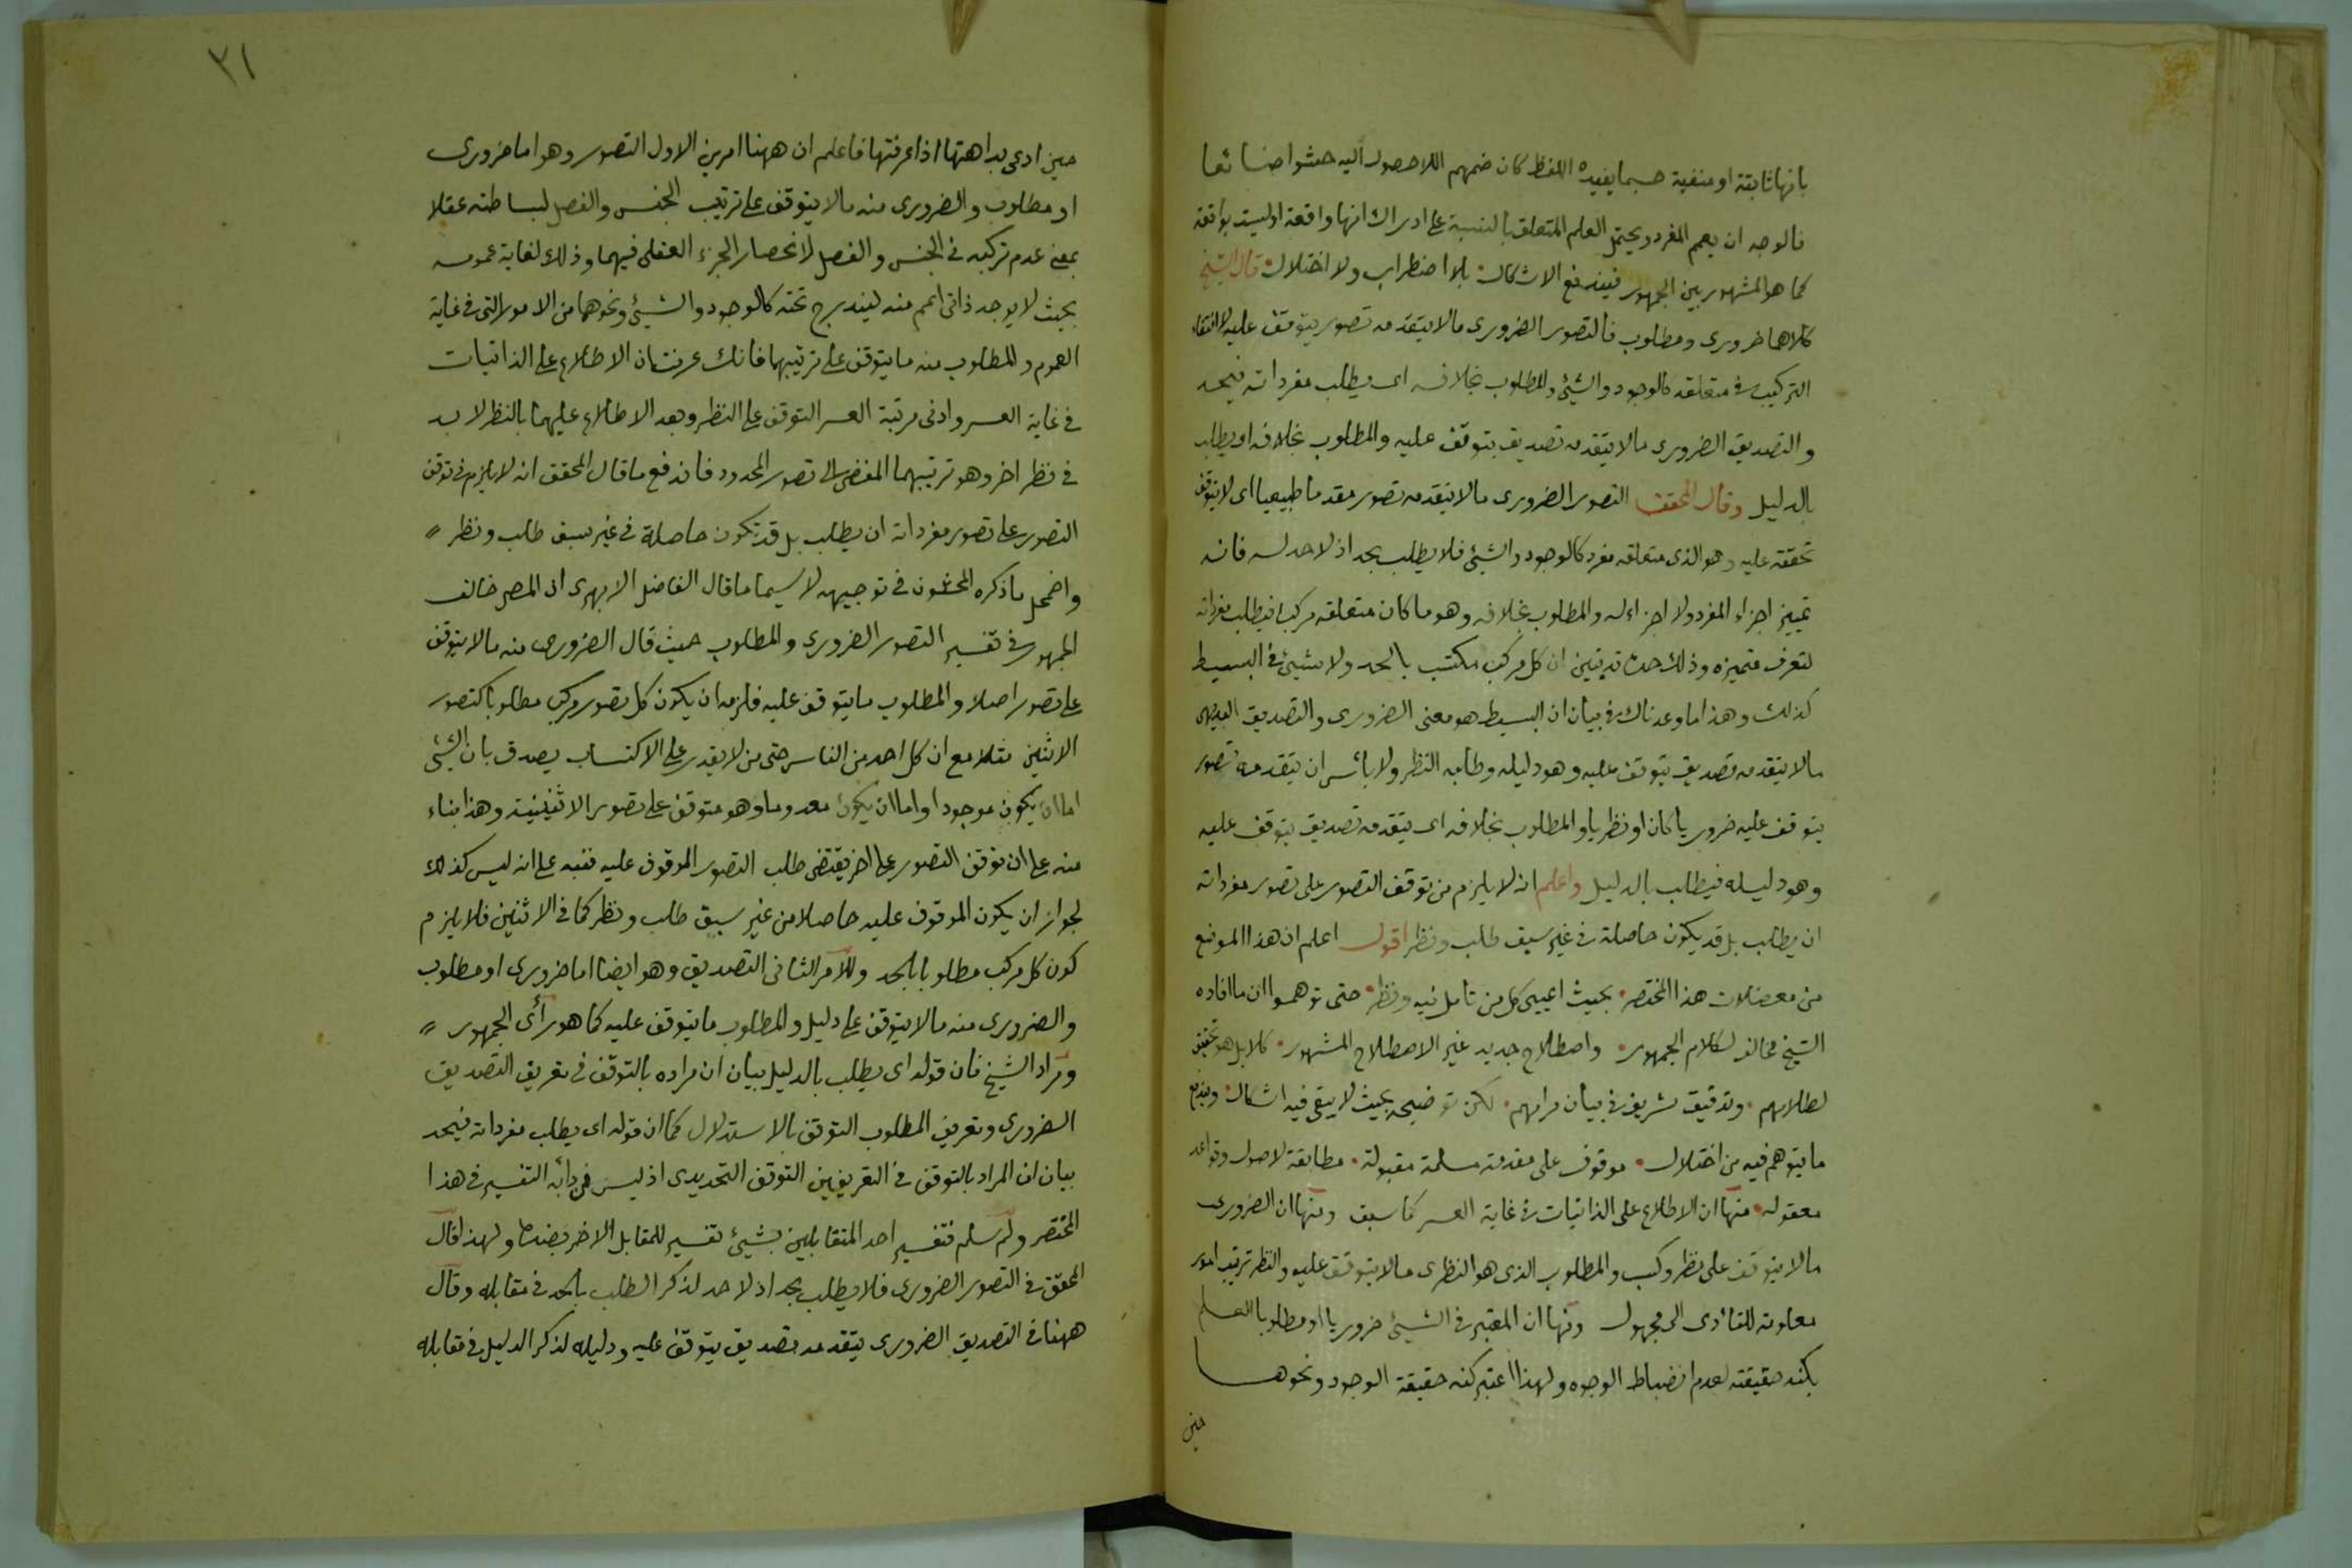 بانها ثابتة او منفية حسبما يفيده اللفظ كان ضمهم اللاحصول اليه حشوا ضائعا
فالوجه ان يعم المفرد ويحتمل العلم المتعلق بالنسبة على ادراك انها واقعة او ليست بواقعة
كما هو المشهور بين الجمهور فيندفع الاشكال بلا اضطراب ولا اختلال قال الشيخ
كلاهما ضرورى ومطلوب فالتصور الضرورى ما لا يتقدمه تصور يتوقف عليه لانتفاء
التركيب فى متعلقه كالوجود والشيئ والمطلوب بخلافه اى يطلب مفرداته فيحد
والتصديق الضرورى ما لا يتقدمه تصديق يتوقف عليه والمطلوب بخلافه اى يطلب
بالدليل وقال المحقق التصور الضرورى ما لا يتقدمه تصور مقدما طبيعيا اى لا يتوقف
تحققه عليه وهو الذى متعلقه مفرد كالوجود والشيئ فلا يطلب بحد اذ لا حد له فانه
تمييز اجزاء المفرد ولا اجزاء له والمطلوب بخلافه وهو ما كان متعلقه مركبا فيطلب مفرداته
لتعرف متميزه وذلك حده تبين ان كل مركب مكتسب بالحد ولا شيئ فى البسيط
كذلك وهذا ما وعدناك فى بيان ان البسيط هو معنى الضرورى والتصديق البديهى
ما لا يتقدمه تصديق يتوقف عليه وهو دليله وطلبه النظر ولا بأس ان يتقدمه تصور
يتوقف عليه ضروريا كان او نظريا والمطلوب بخلافه اى يتقدمه تصديق يتوقف عليه
وهو دليله فيطلب بالدليل واعلم انه لا يلزم من توقف التصور على تصور مفرداته
ان يطلب بل قد يكون حاصلة فى غير سبق طلب ونظر اقول اعلم ان هذا الموضع
من معضلات هذا المختصر بحيث اعيى كل من تامل فيه ونظر حتى توهموا ان ما افاده
الشيخ مخالف لكلام الجمهور واصطلاح جديد غير الاصطلاح المشهور كلا بل هو تحقيق
لطلابهم وتدقيق شريف فى بيان مرامهم لكن توضيحه بحيث لا يبقى فيه اشكال ويندفع
ما يتوهم فيه من اختلال موقوف على مقدمة مسلمة مقبولة مطابقة لاصول وقواعد
معقولة منها ان الاطلاع على الذاتيات فى غاية العسر كما سبق ومنها ان الضرورى
ما لا يتوقف على نظر وكسب والمطلوب الذى هو النظرى ما لا يتوقف عليه والنظر ترتيب امور
معلومة للتأدى الى مجهول ومنها ان المعتبر فى الشيئ ضروريا او مطلوبا العلم
بكنه حقيقته لعدم انضباط الوجوه ولهذا اعتبر كنه حقيقة الوجود ونحوها
حين
٣١
حين ادعى بداهتها اذا عرفتها فاعلم ان ههنا امرين الاول التصور وهو اما ضرورى
او مطلوب والضرورى منه ما لا يتوقف على ترتيب الجنس والفصل لبساطته عقلا
بمعنى عدم تركبه فى الجنس والفصل لانحصار الجزء العقلى فيهما وذلك لغاية عمومه
بحيث لا يوجد ذاتى اعم منه ليندرج تحته كالوجود والشيئ ونحوهما من الامور التى فى غاية
العموم والمطلوب منه ما يتوقف على ترتيبهما فانك عرفت ان الاطلاع على الذاتيات
فى غاية العسر وادنى مرتبة العسر التوقف على النظر وبعد الاطلاع عليهما بالنظر لا بد
فى نظر اخر وهو ترتيبهما المفضى الى تصور المحدود فاندفع ما قال المحقق انه لا يلزم فى توقف
التصور على تصور مفرداته ان يطلب بل قد يكون حاصلة فى غير سبق طلب ونظر
واضمحل ما ذكره المحشون فى توجيهه لا سيما ما قال الفاضل الابهرى ان المصر خالف
الجمهور فى تفسير التصور الضرورى والمطلوب حيث قال الضرورى منه ما لا يتوقف
على تصور اصلا والمطلوب ما يتوقف عليه فلزمه ان يكون كل تصور مركب مطلوبا كتصور
الاثنين مثلا مع ان كل احد من الناس حتى من لا يقدر على الاكتساب يصدق بان الشيئ
اما ان يكون موجودا واما ان يكون معدوما وهو متوقف على تصور الاثنينية وهذا بناء
منه على ان توقف التصور على اخر يقتضى طلب التصور الموقوف عليه فنبه على انه ليس كذلك
لجواز ان يكون الموقوف عليه حاصلا من غير سبق طلب ونظر كما فى الاثنين فلا يلزم
كون كل مركب مطلوبا بالحد والامر الثانى التصديق وهو ايضا اما ضرورى او مطلوب
والضرورى منه ما لا يتوقف على دليل والمطلوب ما يتوقف عليه كما هو رأى الجمهور
ومراد الشيخ فان قوله اى يطلب بالدليل بيان ان مراده بالتوقف فى تعريف التصديق
الضرورى وتعريف المطلوب التوقف بالاستدلال كما ان قوله اى يطلب مفرداته فيحد
بيان ان المراد بالتوقف فى التعريفين التوقف التحديدى اذ ليس من دأبه التفسير فى هذا
المختصر ولم سلم فتفسير احد المتقابلين بشيئ تفسير للمقابل الاخر بضده ولهذا قال
المحقق فى التصور الضرورى فلا يطلب بحد اذ لا حد لذكر الطلب بالحد فى مقابله وقال
ههنا فى التصديق الضرورى يتقدمه تصديق يتوقف عليه ودليله لذكر الدليل فى مقابله